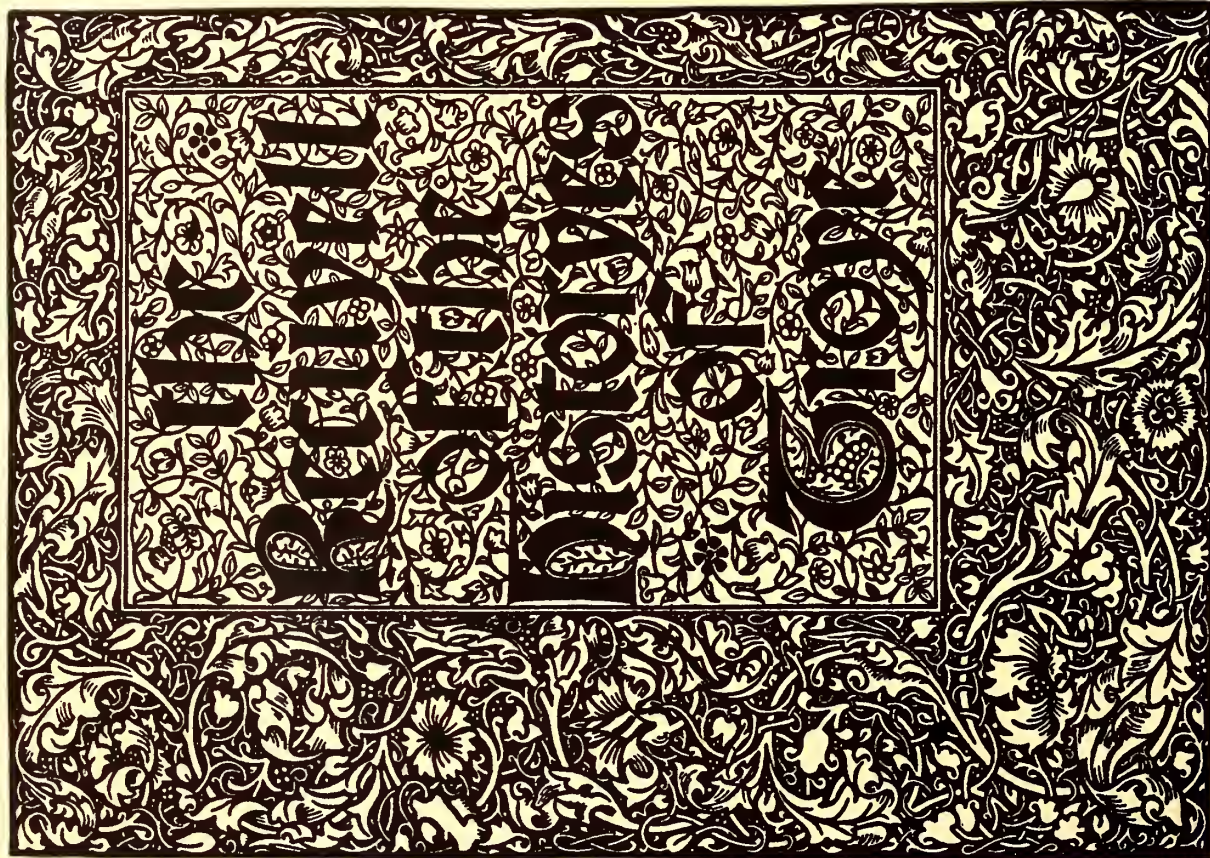 the
Recuyell
of the
Historyes
of
Troye